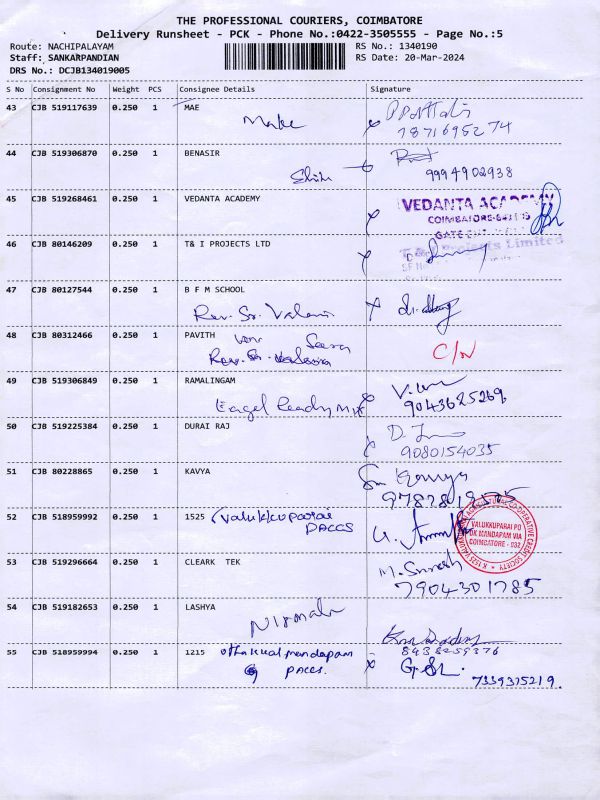 THE PROFESSIONAL COURIERS, COIMBATORE
Delivery Runsheet - PCK - Phone No.:0422-3505555 - Page No.:5
Route: NACHIPALAYAM
Staff: SANKARPANDIAN
DRS No.: DCJB134019005
RS No.: 1340190
RS Date: 20-Mar-2024
S No Consignment No Weight PCS Consignee Details Signature
43 CJB 519117639 0.250 1 MAE
7871695274
44 CJB 519306870 0.250 1 BENASIR
9994902938
45 CJB 519268461 0.250 1 VEDANTA ACADEMY
VEDANTA ACADEMY
COIMBATORE-641
46 CJB 80146209 0.250 1 T& I PROJECTS LTD
Projects Limited
47 CJB 80127544 0.250 1 B F M SCHOOL
Rev. Sr. Valani
48 CJB 80312466 0.250 1 PAVITH
Rev. Sr.
49 CJB 519306849 0.250 1 RAMALINGAM
Eagel Ready Mix
9043625269
50 CJB 519225384 0.250 1 DURAI RAJ
9080154035
51 CJB 80228865 0.250 1 KAVYA
52 CJB 518959992 0.250 1 1525 Valukkuparai
PACCS
VALUKKUPARAI PO
OK MANDAPAM VIA
COIMBATORE - 032
53 CJB 519296664 0.250 1 CLEARK TEK
M. Suresh
7904301785
54 CJB 519182653 0.250 1 LASHYA
Nirmala
8438259376
55 CJB 518959994 0.250 1 1215 othakkalmandapam
PACCS.
7339375219